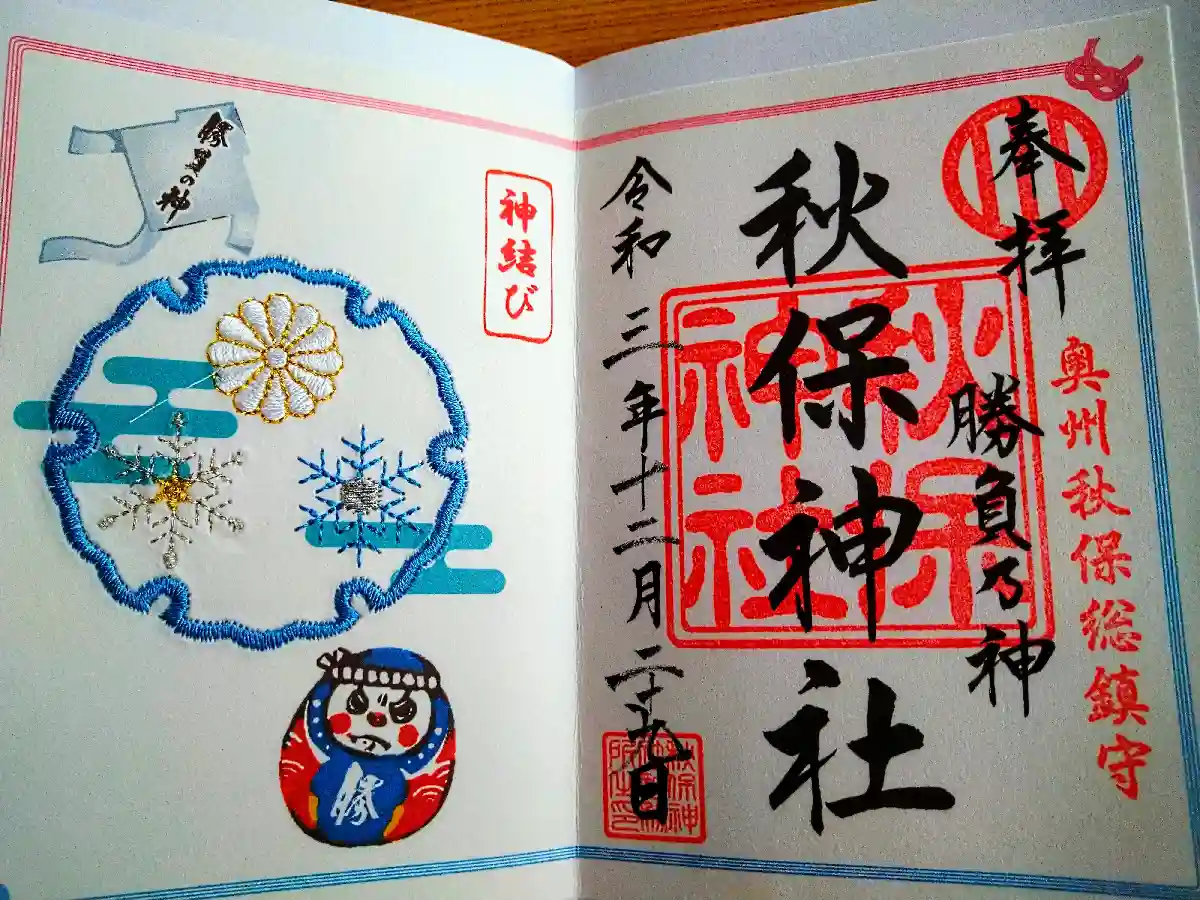 奉拝
奥州秋保総鎮守
勝負乃神
秋保神社
秋保神社
令和三年十二月二十九日
神結び
勝負の神
勝